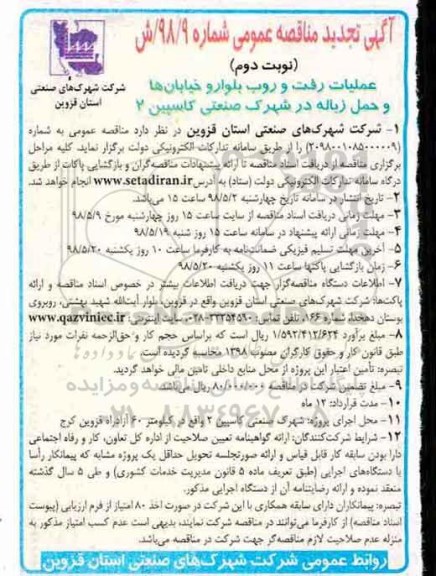 آگهی تجدید مناقصه عمومی شماره ۹۸/۹/ش
(نوبت دوم)
شرکت شهرک‌های صنعتی
استان قزوین
عملیات رفت و روب بلوار و خیابان‌ها
و حمل زباله در شهرک صنعتی کاسپین ۲
۱- شرکت شهرک‌های صنعتی استان قزوین در نظر دارد مناقصه عمومی به شماره
(۲۰۹۸۰۰۱۰۸۵۰۰۰۰۰۹) را از طریق سامانه تدارکات الکترونیکی دولت برگزار نماید. کلیه مراحل
برگزاری مناقصه از دریافت اسناد مناقصه تا ارائه پیشنهادات مناقصه‌گران و بازگشایی پاکات از طریق
درگاه سامانه تدارکات الکترونیکی دولت (ستاد) به آدرس www.setadiran.ir انجام خواهد شد.
۲- تاریخ انتشار در سامانه تاریخ چهارشنبه ۹۸/۵/۲ ساعت ۱۵ می‌باشد.
۳- مهلت زمانی دریافت اسناد مناقصه از سایت ساعت ۱۵ روز چهارشنبه مورخ ۹۸/۵/۹
۴- مهلت زمانی ارائه پیشنهاد در سامانه ساعت ۱۵ روز شنبه ۹۸/۵/۱۹
۵- آخرین مهلت تسلیم فیزیکی ضمانت‌نامه به کارفرما ساعت ۱۰ روز یکشنبه ۹۸/۵/۲۰
۶- زمان بازگشایی پاکتها ساعت ۱۱ روز یکشنبه ۹۸/۵/۲۰
۷- اطلاعات دستگاه مناقصه‌گزار جهت دریافت اطلاعات بیشتر در خصوص اسناد مناقصه و ارائه
پاکت‌ها: شرکت شهرک‌های صنعتی استان قزوین واقع در قزوین بلوار آیت‌الله شهید بهشتی، روبروی
بوستان دهخدا شماره ۱۶۶، تلفن تماس: ۳۳۲۵۴۵۹۰-۰۲۸ سایت اینترنتی: www.qazviniec.ir
۸- مبلغ برآورد ۱/۵۹۲/۴۱۲/۶۲۴ ریال است که براساس حجم کار و حق‌الزحمه نفرات مورد نیاز
طبق قانون کار و حقوق کارگران مصوب ۱۳۹۸ محاسبه گردیده است.
تبصره: تأمین اعتبار این پروژه از محل منابع داخلی تامین مالی خواهد گردید.
۹- مبلغ تضمین شرکت در مناقصه ۸۰/۰۰۰/۰۰۰ ریال می‌باشد.
۱۰- مدت قرارداد: ۱۲ ماه
۱۱- محل اجرای پروژه: شهرک صنعتی کاسپین ۲ واقع در کیلومتر ۶۰ آزادراه قزوین کرج
۱۲- شرایط شرکت‌کنندگان: ارائه گواهینامه تعیین صلاحیت از اداره کل تعاون، کار و رفاه اجتماعی
دارا بودن سابقه کار قابل قیاس و ارائه صورتجلسه تحویل حداقل یک پروژه مشابه که پیمانکار رأسا
با دستگاه‌های اجرایی (طبق تعریف ماده ۵ قانون مدیریت خدمات کشوری) و طی ۵ سال گذشته
منعقد نموده و ارائه رضایتنامه آن از دستگاه اجرایی مذکور.
تبصره: پیمانکاران دارای سابقه همکاری با این شرکت در صورت اخذ ۸۰ امتیاز از فرم ارزیابی (پیوست
اسناد مناقصه) از کارفرما می‌توانند در مناقصه شرکت نمایند، بدیهی است عدم کسب امتیاز مذکور به
منزله عدم صلاحیت لازم مناقصه‌گر جهت شرکت در مناقصه می‌باشد.
روابط عمومی شرکت شهرک‌های صنعتی استان قزوین